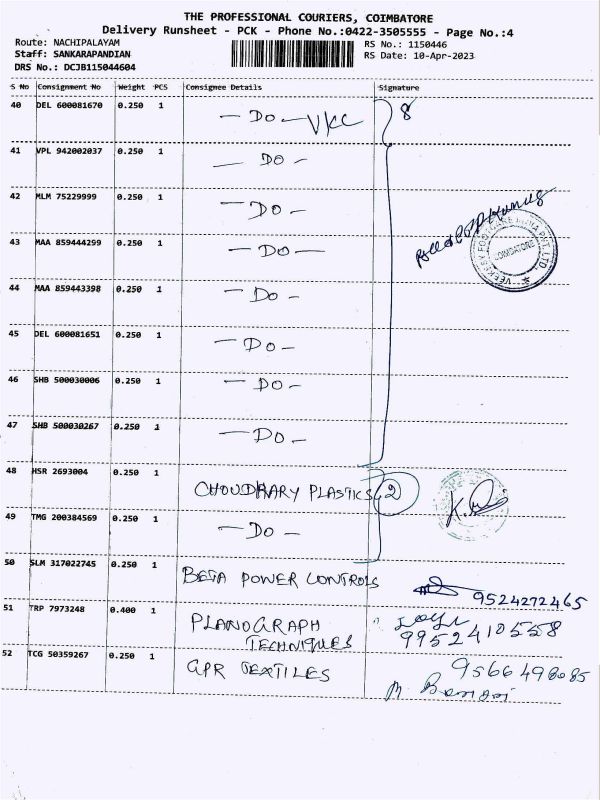 THE PROFESSIONAL COURIERS, COIMBATORE
Delivery Runsheet - PCK - Phone No.:0422-3505555 - Page No.:4
Route: NACHIPALAYAM
RS No.: 1150446
Staff: SANKARAPANDIAN
RS Date: 10-Apr-2023
DRS No.: DCJB115044604
S No Consignment No Weight PCS Consignee Details Signature
40 DEL 600081670 0.250 1 — Do — VKC 8
41 VPL 942002037 0.250 1 — Do —
42 MLM 75229999 0.250 1 — Do —
43 MAA 859444299 0.250 1 — Do —
44 MAA 859443398 0.250 1 — Do —
45 DEL 600081651 0.250 1 — Do —
46 SHB 500030006 0.250 1 — Do —
47 SHB 500030267 0.250 1 — Do —
48 HSR 2693004 0.250 1 CHOUDHARY PLASTICS 2
49 TMG 200384569 0.250 1 — Do —
50 SLM 317022745 0.250 1 BETA POWER CONTROLS 9524272465
51 TRP 7973248 0.400 1 PLANOGRAPH
TECHNIQUES 9952410558
52 TCG 50359267 0.250 1 GPR TEXTILES 9566498085
COIMBATORE